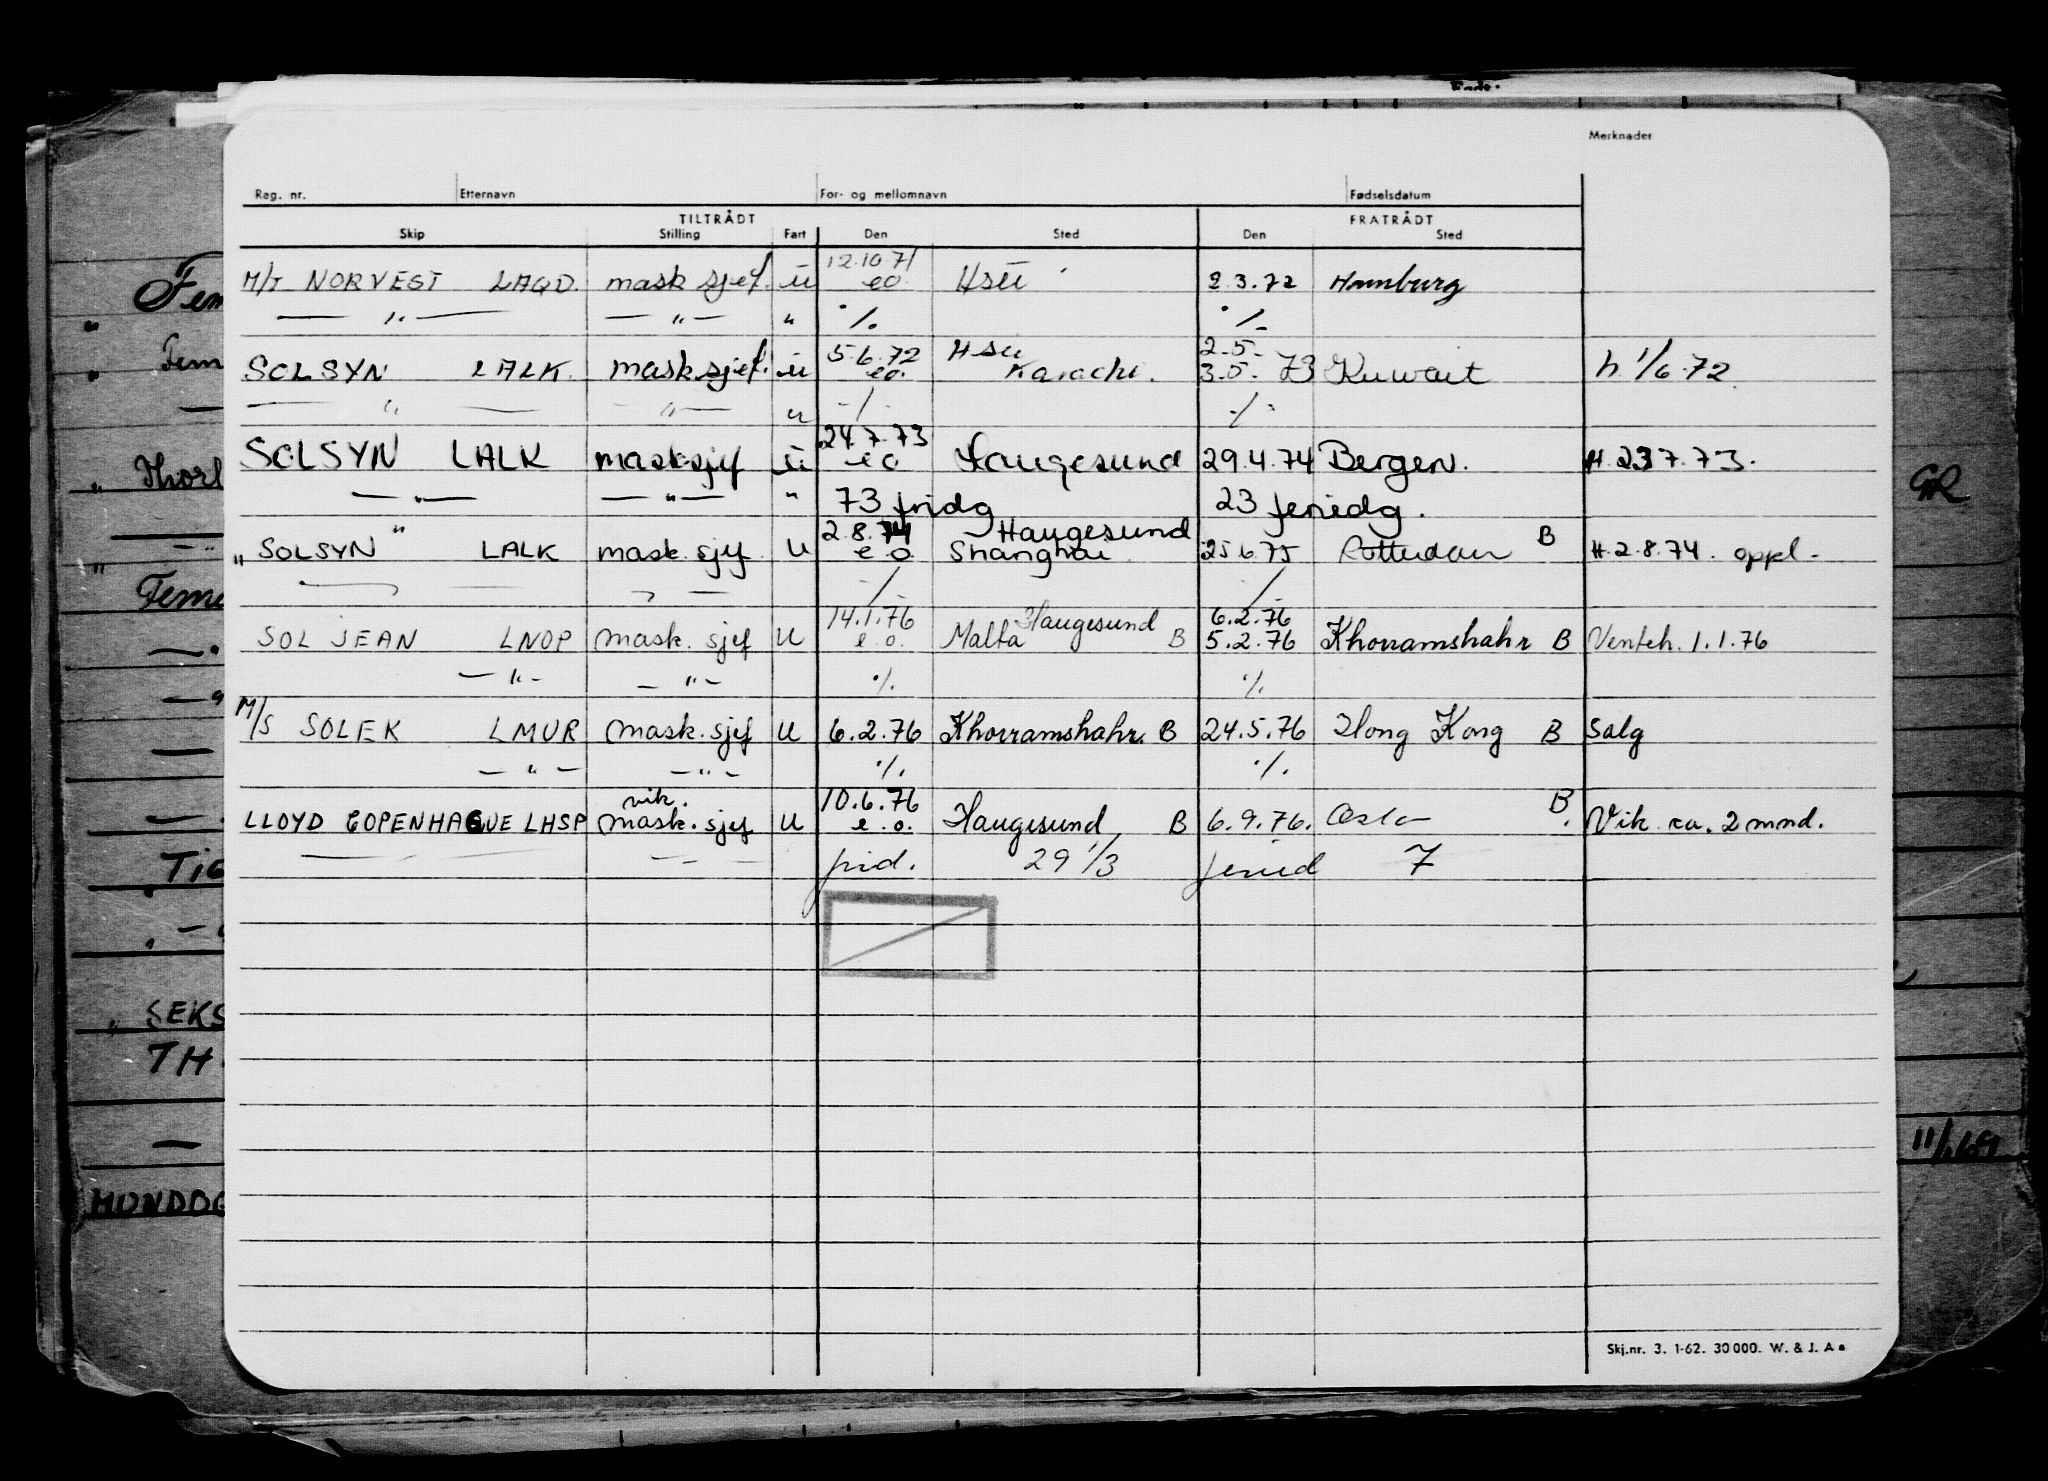 Merknader
Reg. nr. Etternavn For- og mellomnavn Fødselsdatum
TILTRÅDT FRATRÅDT
Skip Stilling Fart Den Sted Den Sted
12.10.71
M/T NORVEST LAQD. mask sjef. ū eo. Hsū 2.3.72 Hamburg
— " — — " — " ·/. ·/-
5.6.72 Hsu 2.5.
SOLSYN LALK. mask sjef. ū eo. Karachi. 3.5. 73 Kuwait h. 1/6.72
— " — — " — u -/- ·/-
24.7.73
SOLSYN LALK mask sjef ū eo Haugesund 29.4.74 Bergen. H.237.73.
— " — — " — " 73 fridg 23 feriedg.
2.8.74 Haugesund
" SOLSYN " LALK mask. sjef U e o. Shanghai 25.6.75 Rotterdam B H.2.8.74. oppl-
14.1.76 Haugesund 6.2.76
SOL JEAN LNOP mask. sjef U e.o. Malta B 5.2.76 Khorramshahr B Venteh. 1.1.76
— " - — " - ·/. ·/.
M/S SOLEK LMUR mask. sjef U 6.2.76 Khorramshahr. B 24.5.76 Hong Kong B Salg
— " — — " - ·/. ·/.
vik. 10.6.76 B
LLOYD COPENHAGUE LHSP mask. sjef U e.o. Haugesund B 6.9.76. Oslo Vik ca. 2 mnd.
frid. 29 1/3 feried 7
Skj.nr. 3. 1-62. 30 000. W. & J. A s
Fem
Fem
Thorl
Feme
TIG
SEKS
TH
MUNDOG
GR
11/1 69